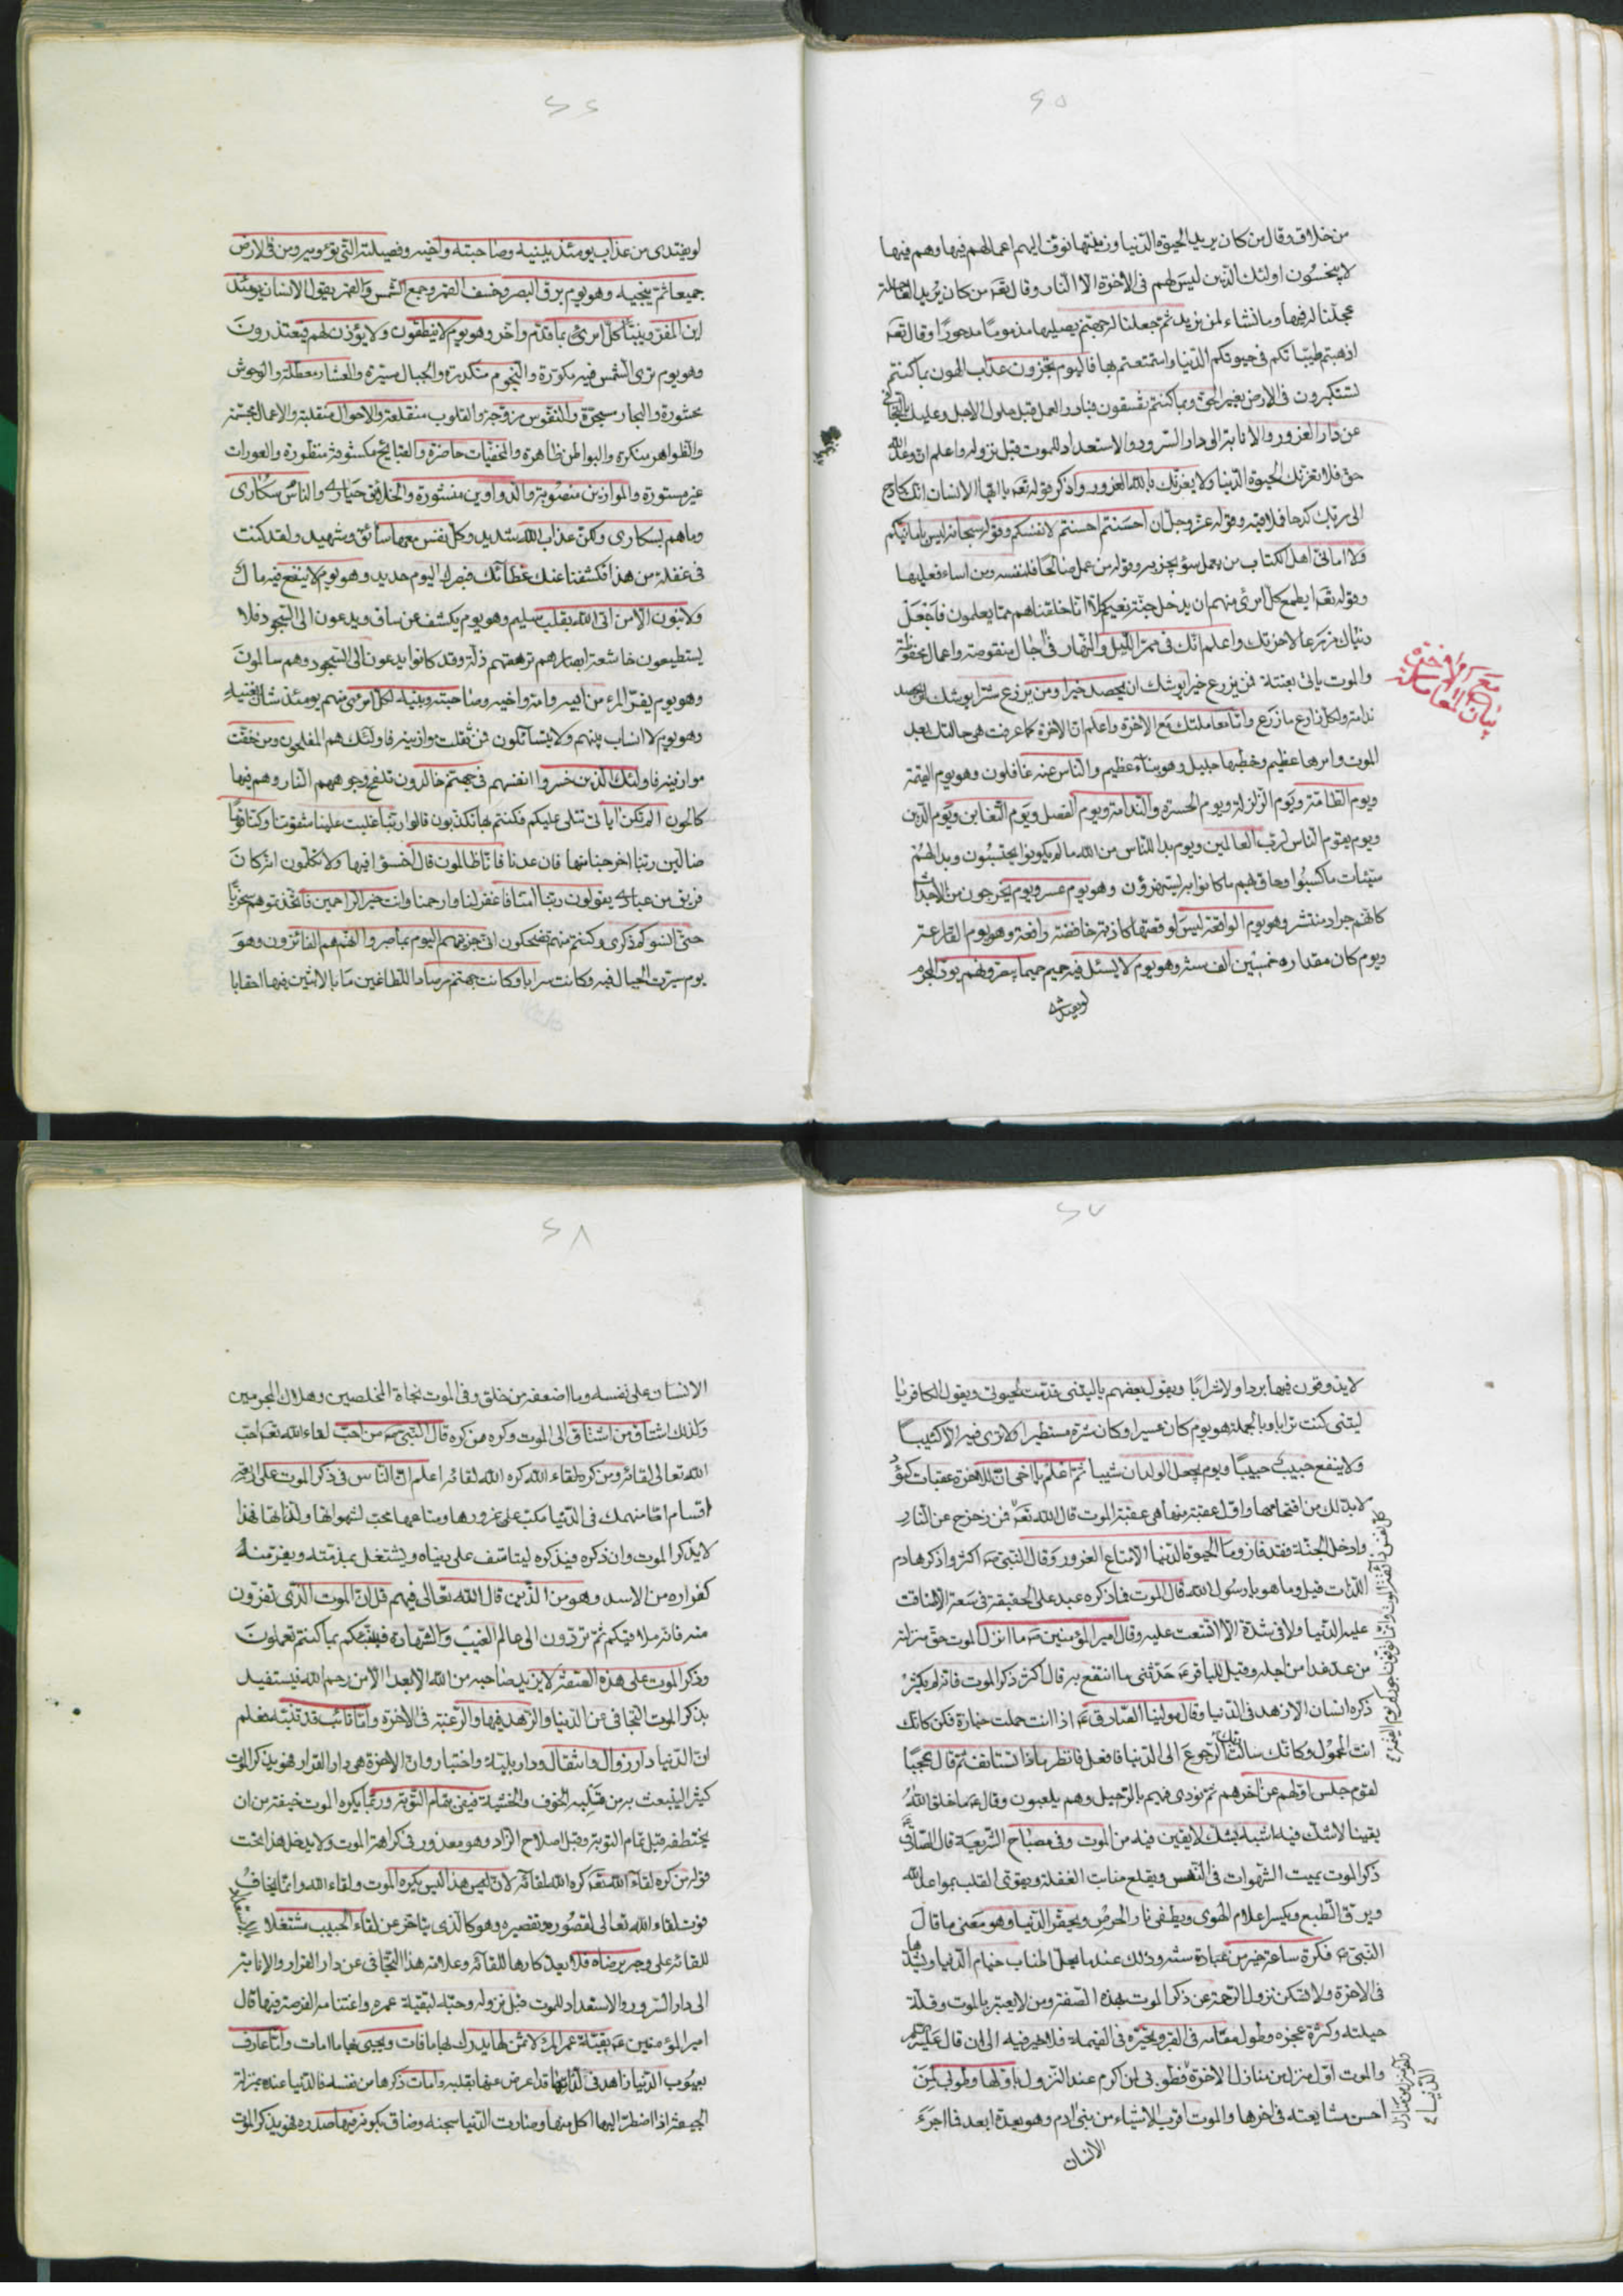 ٤٥
من خلاق وقال من كان يريد الحيوة الدنيا وزينتها نوف اليهم اعمالهم فيها وهم فيها
لا يبخسون اولئك الذين ليس لهم فى الاخرة الا النار وقال تعه من كان يريد العاجلة
عجلنا له فيها ما نشاء لمن نريد ثم جعلنا له جهنم يصليها مذموما مدحورا وقال تعه
اذهبتم طيباتكم فى حيوتكم الدنيا واستمتعتم بها فاليوم تجزون عذاب الهون بما كنتم
تستكبرون فى الارض بغير الحق وبما كنتم تفسقون فبادر العمل قبل حلول الاجل وعليك بالتجافى
عن دار الغرور والانابة الى دار السرور والاستعداد للموت قبل نزوله واعلم ان وعد الله
حق فلا تغرنك الحيوة الدنيا ولا يغرنك بالله الغرور واذكر قوله تعه يا ايها الانسان انك كادح
الى ربك كدحا فملاقيه وقوله عز وجل ان احسنتم احسنتم لانفسكم وقوله سبحانه ليس بامانيكم
ولا امانى اهل الكتاب من يعمل سوء يجز به وقوله من عمل صالحا فلنفسه ومن اساء فعليها
وقوله تعه ايطمع كل امرئ منهم ان يدخل جنة نعيم كلا انا خلقناهم مما يعلمون فاجعل
دنياك مزرعا لاخرتك واعلم انك فى ممر الليل والنهار فى اجال منقوصة واعمال محفوظة
والموت ياتى بغتة فمن يزرع خيرا يوشك ان يحصد خيرا ومن يزرع شرا يوشك ان يحصد
ندامة ولكل زارع ما زرع وانما معاملتك مع الاخرة واعلم ان الاخرة كما عرفت هى حالتك بعد
الموت وامرها عظيم وخطبها جليل وهو نبأ عظيم والناس عنه غافلون وهو يوم القيمة
ويوم الطامة ويوم الزلزلة ويوم الحسرة والندامة ويوم الفصل ويوم التغابن ويوم الدين
ويوم يقوم الناس لرب العالمين ويوم بدا للناس من الله ما لم يكونوا يحتسبون وبدا لهم
سيئات ما كسبوا وحاق بهم ما كانوا به يستهزؤن وهو يوم عسر ويوم يخرجون من الاجداث
كانهم جراد منتشر وهو يوم الواقعة ليس لوقعتها كاذبة خافضة رافعة وهو يوم القارعة
ويوم كان مقداره خمسين الف سنة وهو يوم لا يسئل فيه حميم حميما يبصرونهم يود المجرم
لو يفتدى
بيان المعاملة مع الاخرة
٤٦
لو يفتدى من عذاب يومئذ ببنيه وصاحبته واخيه وفصيلته التى تؤويه ومن فى الارض
جميعا ثم ينجيه وهو يوم برق البصر وخسف القمر وجمع الشمس والقمر يقول الانسان يومئذ
اين المفر وينبأ كل امرئ بما قدم واخر وهو يوم لا ينطقون ولا يؤذن لهم فيعتذرون
وهو يوم ترى الشمس فيه مكورة والنجوم منكدرة والجبال مسيرة والعشار معطلة والوحوش
محشورة والبحار مسجرة والنفوس مزوجة والقلوب منقلعة والاحوال منقلبة والاعمال مجسمة
والظواهر منكرة والبواطن ظاهرة والمخفيات حاضرة والقبائح مكشوفة منظورة والعورات
غير مستورة والموازين منصوبة والدواوين منشورة والخلائق حيارى والناس سكارى
وما هم بسكارى ولكن عذاب الله شديد وكل نفس معها سائق وشهيد ولقد كنت
فى غفلة من هذا فكشفنا عنك غطائك فبصرك اليوم حديد وهو يوم لا ينفع فيه مال
ولا بنون الا من اتى الله بقلب سليم وهو يوم يكشف عن ساق ويدعون الى السجود فلا
يستطيعون خاشعة ابصارهم ترهقهم ذلة وقد كانوا يدعون الى السجود وهم سالمون
وهو يوم يفر المرء من اخيه وامه وابيه وصاحبته وبنيه لكل امرئ منهم يومئذ شان يغنيه
وهو يوم لا انساب بينهم ولا يتسائلون فمن ثقلت موازينه فاولئك هم المفلحون ومن خفت
موازينه فاولئك الذين خسروا انفسهم فى جهنم خالدون تلفح وجوههم النار وهم فيها
كالحون الم تكن اياتى تتلى عليكم فكنتم بها تكذبون قالوا ربنا غلبت علينا شقوتنا وكنا قوما
ضالين ربنا اخرجنا منها فان عدنا فانا ظالمون قال اخسؤا فيها ولا تكلمون انه كان
فريق من عبادى يقولون ربنا امنا فاغفر لنا وارحمنا وانت خير الراحمين فاتخذتموهم سخريا
حتى انسوكم ذكرى وكنتم منهم تضحكون انى جزيتهم اليوم بما صبروا انهم هم الفائزون وهو
يوم سيرت الجبال فيه وكانت سرابا وكانت جهنم مرصادا للطاغين مابا لابثين فيها احقابا
٤٧
لا يذوقون فيها بردا ولا شرابا ويقول بعضهم يا ليتنى قدمت لحيوتى ويقول الكافر يا
ليتنى كنت ترابا وبالجملة هو يوم كان عسيرا وكان شره مستطيرا ولا ترى فيه الا كئيبا
ولا ينفع حبيب حبيبا ويوم يجعل الولدان شيبا ثم اعلم يا اخى ان للاخرة عقبات كؤد
لا بد لك من اقتحامها واول عقبة منها هى عقبة الموت قال الله تعه فمن زحزح عن النار
وادخل الجنة فقد فاز وما الحيوة الدنيا الا متاع الغرور وقال النبى ص اكثروا ذكر هادم
اللذات قيل وما هو يا رسول الله قال الموت فما ذكره عبد على الحقيقة فى سعة الا ضاقت
عليه الدنيا ولا فى شدة الا اتسعت عليه وقال امير المؤمنين ع ما انزل الموت حق منزلته
من عد غدا من اجله وقيل للباقر ع حدثنى ما انتفع به قال اكثر ذكر الموت فانه لم يكثر
ذكره انسان الا زهد فى الدنيا وقال مولينا الصادق ع اذا انت حملت جنازة فكن كانك
انت المحمول وكانك سالت ربك الرجوع الى الدنيا فافعل فانظر ماذا تستانف ثم قال عجبا
لقوم حبس اولهم عن اخرهم ثم نودى فيهم بالرحيل وهم يلعبون وقال ع ما خلق الله
يقينا لا شك فيه اشبه بشك لا يقين فيه من الموت وفى مصباح الشريعة قال الصادق ع
ذكر الموت يميت الشهوات فى النفس ويقلع منابت الغفلة ويقوى القلب بمواعد الله
ويرق الطبع ويكسر اعلام الهوى ويطفى نار الحرص ويحقر الدنيا وهو معنى ما قال
النبى ص فكرة ساعة خير من عبادة سنة وذلك عند ما يحل اطناب خيام الدنيا ويشدها
فى الاخرة ولا تشكن نزول الرحمة عن ذكر الموت بهذه الصفة ومن لا يعتبر بالموت وقلة
حيلته وكثرة عجزه وطول مقامه فى القبر وتحيره فى القيمة فلا خير فيه الى ان قال عليه السلم
والموت اول منزل من منازل الاخرة فطوبى لمن اكرم عند النزول باولها وطوبى لمن
احسن مشايعته فى اخرها والموت اقرب الاشياء من بنى ادم وهو يعده ابعد فما اجرء
الانسان
كل نفس ذائقة الموت وانما توفون اجوركم يوم القيمة
واخر منزل من منازل
الدنيا
٤٨
الانسان على نفسه وما اضعفه من خلق وفى الموت نجاة المخلصين وهلاك المجرمين
ولذلك اشتاق من اشتاق الى الموت وكره من كره قال النبى ص من احب لقاء الله تعه احب
الله تعالى لقائه ومن كره لقاء الله كره الله لقائه اعلم ان الناس فى ذكر الموت على اربعة
اقسام اما منهمك فى الدنيا مكب على غرورها ومتاعها محب لشهواتها ولذاتها فهذا
لا يذكر الموت وان ذكره فيذكره ليتاسف على دنياه ويشتغل بمذمته ويفر منه
كفراره من الاسد وهو من الذين قال الله تعالى فيهم قل ان الموت الذى تفرون
منه فانه ملاقيكم ثم تردون الى عالم الغيب والشهادة فينبئكم بما كنتم تعملون
وذكر الموت على هذه الصفة لا يزيد صاحبه من الله الا بعدا الا من رحم الله فيستفيد
بذكر الموت التجافى عن الدنيا والزهد فيها والرغبة فى الاخرة واما تائب قد تنبه فعلم
ان الدنيا دار زوال وانتقال ودار بلية واختبار وان الاخرة هى دار القرار فهو يذكر الموت
كثيرا لينبعث به من قلبه الخوف والخشية فيفى بتمام التوبة وربما يكره الموت خيفة من ان
يختطفه قبل تمام التوبة وقبل اصلاح الزاد وهو معذور فى كراهة الموت ولا يدخل هذا تحت
قوله من كره لقاء الله تعه كره الله لقائه لان هذا ليس يكره الموت ولقاء الله وانما يخاف
فوت لقاء الله تعالى لقصوره وتقصيره وهو كالذى يتاخر عن لقاء الحبيب مشتغلا
للقائه على وجه يرضاه فلا يعد كارها للقائه وعلامة هذا التجافى عن دار الغرور والانابة
الى دار السرور والاستعداد للموت قبل نزوله وحبه لبقية عمره واغتنامه الفرصة فيها قال
امير المؤمنين ع بقية عمر المرء لا ثمن لها يدرك بها ما فات ويحيى بها ما امات واما عارف
بعيوب الدنيا زاهد فى لذاتها قد اعرض عنها بقلبه وامات ذكرها من نفسه فالدنيا عنده بمنزلة
الجيفة اذا اضطر اليها اكل منها وصارت الدنيا سجنه وضاق بكونه فيها صدره فهو يذكر الموت